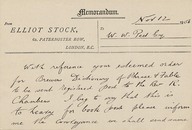 Memorandum.
From
ELLIOT STOCK,
62, PATERNOSTER ROW,
LONDON, E.C.
Nov 12
To
W. W. Esq
With reference your esteemed order
for Brewer Dictionary of Phrase & Fable
to be sent Registered Post to the Rev R.
Chambers I beg to say that this is
a heavy book and please inform
me the conveyance we shall send same